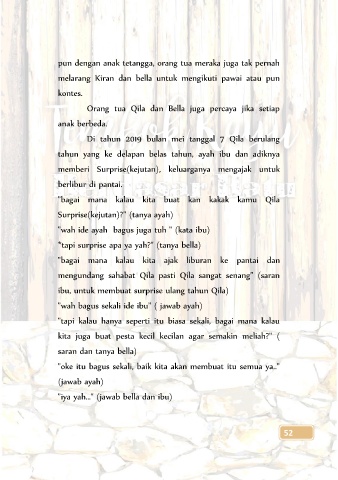 pun dengan anak tetangga, orang tua meraka juga tak pernah
melarang Kiran dan bella untuk mengikuti pawai atau pun
kontes.
Orang tua Qila dan Bella juga percaya jika setiap
anak berbeda.
Di tahun 2019 bulan mei tanggal 7 Qila berulang
tahun yang ke delapan belas tahun, ayah ibu dan adiknya
memberi Surprise(kejutan), keluarganya mengajak untuk
berlibur di pantai.
"bagai mana kalau kita buat kan kakak kamu Qila
Surprise(kejutan)?" (tanya ayah)
"wah ide ayah bagus juga tuh " (kata ibu)
"tapi surprise apa ya yah?" (tanya bella)
"bagai mana kalau kita ajak liburan ke pantai dan
mengundang sahabat Qila pasti Qila sangat senang" (saran
ibu, untuk membuat surprise ulang tahun Qila)
"wah bagus sekali ide ibu" ( jawab ayah)
"tapi kalau hanya seperti itu biasa sekali, bagai mana kalau
kita juga buat pesta kecil kecilan agar semakin meliah?" (
saran dan tanya bella)
"oke itu bagus sekali, baik kita akan membuat itu semua ya.."
(jawab ayah)
"iya yah..." (jawab bella dan ibu)
52